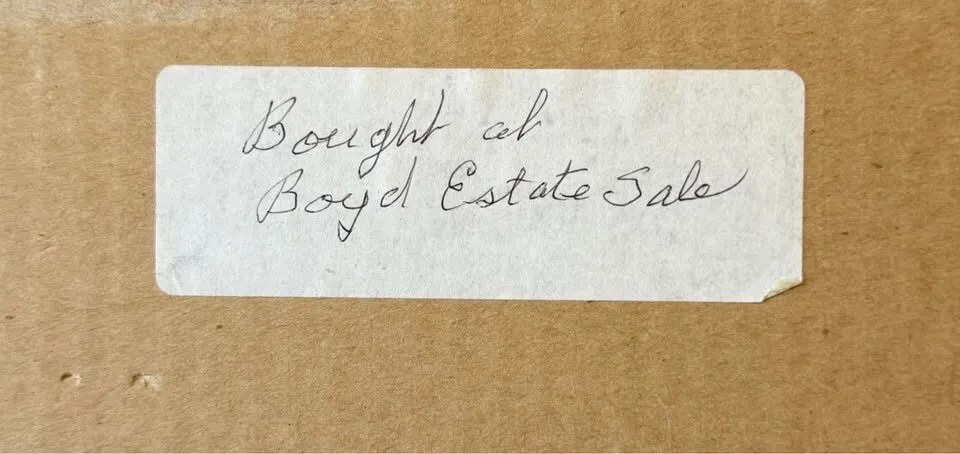 Bought at
Boyd Estate Sale